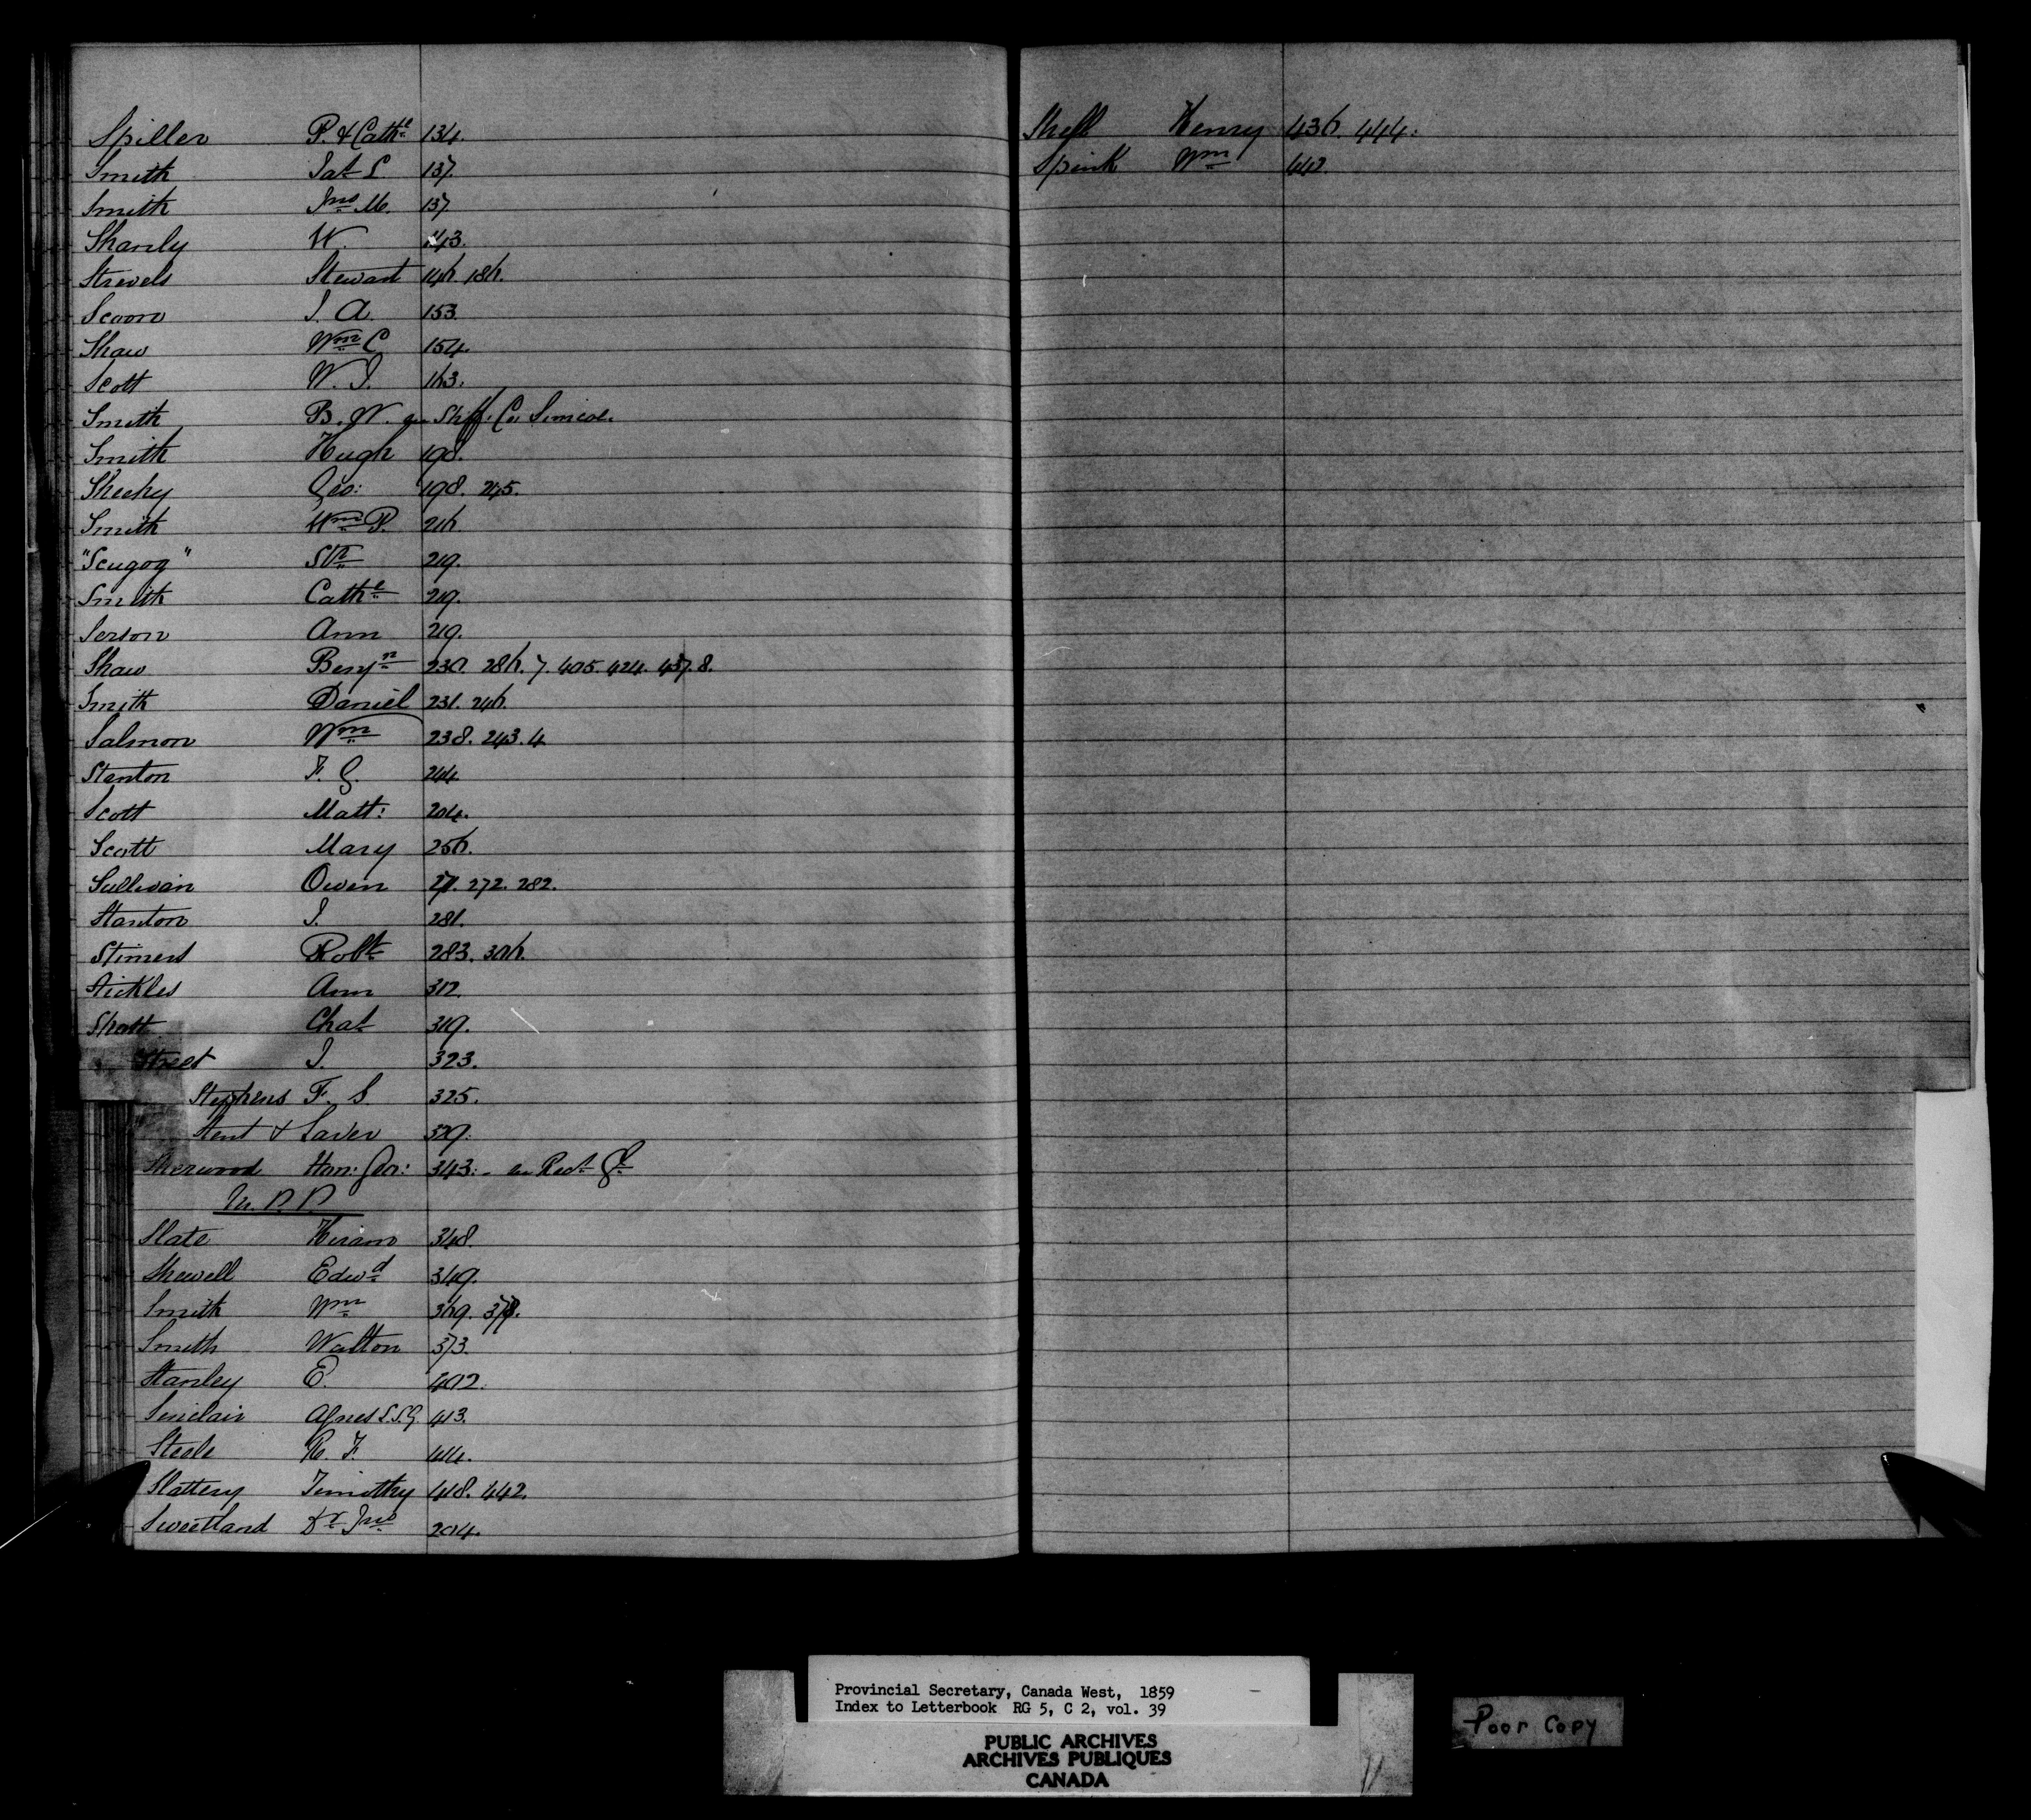 Spiller P. & Cathe 134.
Smith Jas L 137.
Smith Jno M. 137
Shanly W. 143.
Strevels Stewart 146. 186.
Scoon J. A. 153.
Shaw Wm C 154.
Scott W. J. 163.
Smith B. W. Shff. Co. Simcoe.
Smith Hugh 198.
Sheehy Geo: 198. 245.
Smith Wm P. 216.
"Scugog" Str 219.
Smith Cathe 219.
Serson Ann 219.
Shaw Benjn 230. 286. 7. 405. 424. 437. 8.
Smith Daniel 231. 246.
Salmon Wm 238. 243. 4
Stenton F. G. 244
Scott Matt: 204.
Scott Mary 256.
Sullivan Owen 271. 272. 282.
Stanton J. 281.
Stimers Robt 283. 306.
Stickles Ann 312.
Shott Chas 319.
Street J. 323.
Stephens F. S. 325.
Stent & Laver 329.
Sherwood Hon: Geo: 343. Recr Gl
M. P. P.
Slate Hiram 348.
Shewell Edwd 349.
Smith Wm 369. 378.
Smith Walton 373.
Stanley E. 402.
Sinclair Agnes S.S.G. 413.
Steele R. F. 414.
Slattery Timothy 418. 442.
Sweetland Dr Jno 204.
Shell Henry 436. 444.
Spink Wm 442.
Provincial Secretary, Canada West, 1859
Index to Letterbook RG 5, C 2, vol. 39
PUBLIC ARCHIVES
ARCHIVES PUBLIQUES
CANADA
Poor Copy